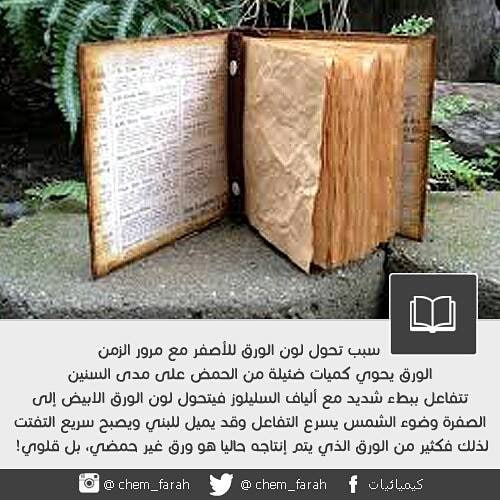 سبب تحول لون الورق للأصفر مع مرور الزمن
الورق يحوي كميات ضئيلة من الحمض على مدى السنين
تتفاعل ببطء شديد مع ألياف السليلوز فيتحول لون الورق الابيض إلى
الصفرة وضوء الشمس يسرع التفاعل وقد يميل للبني ويصبح سريع التفتت
لذلك فكثير من الورق الذي يتم إنتاجه حاليا هو ورق غير حمضي، بل قلوي!
@ chem_farah @ chem_farah كيميائيات